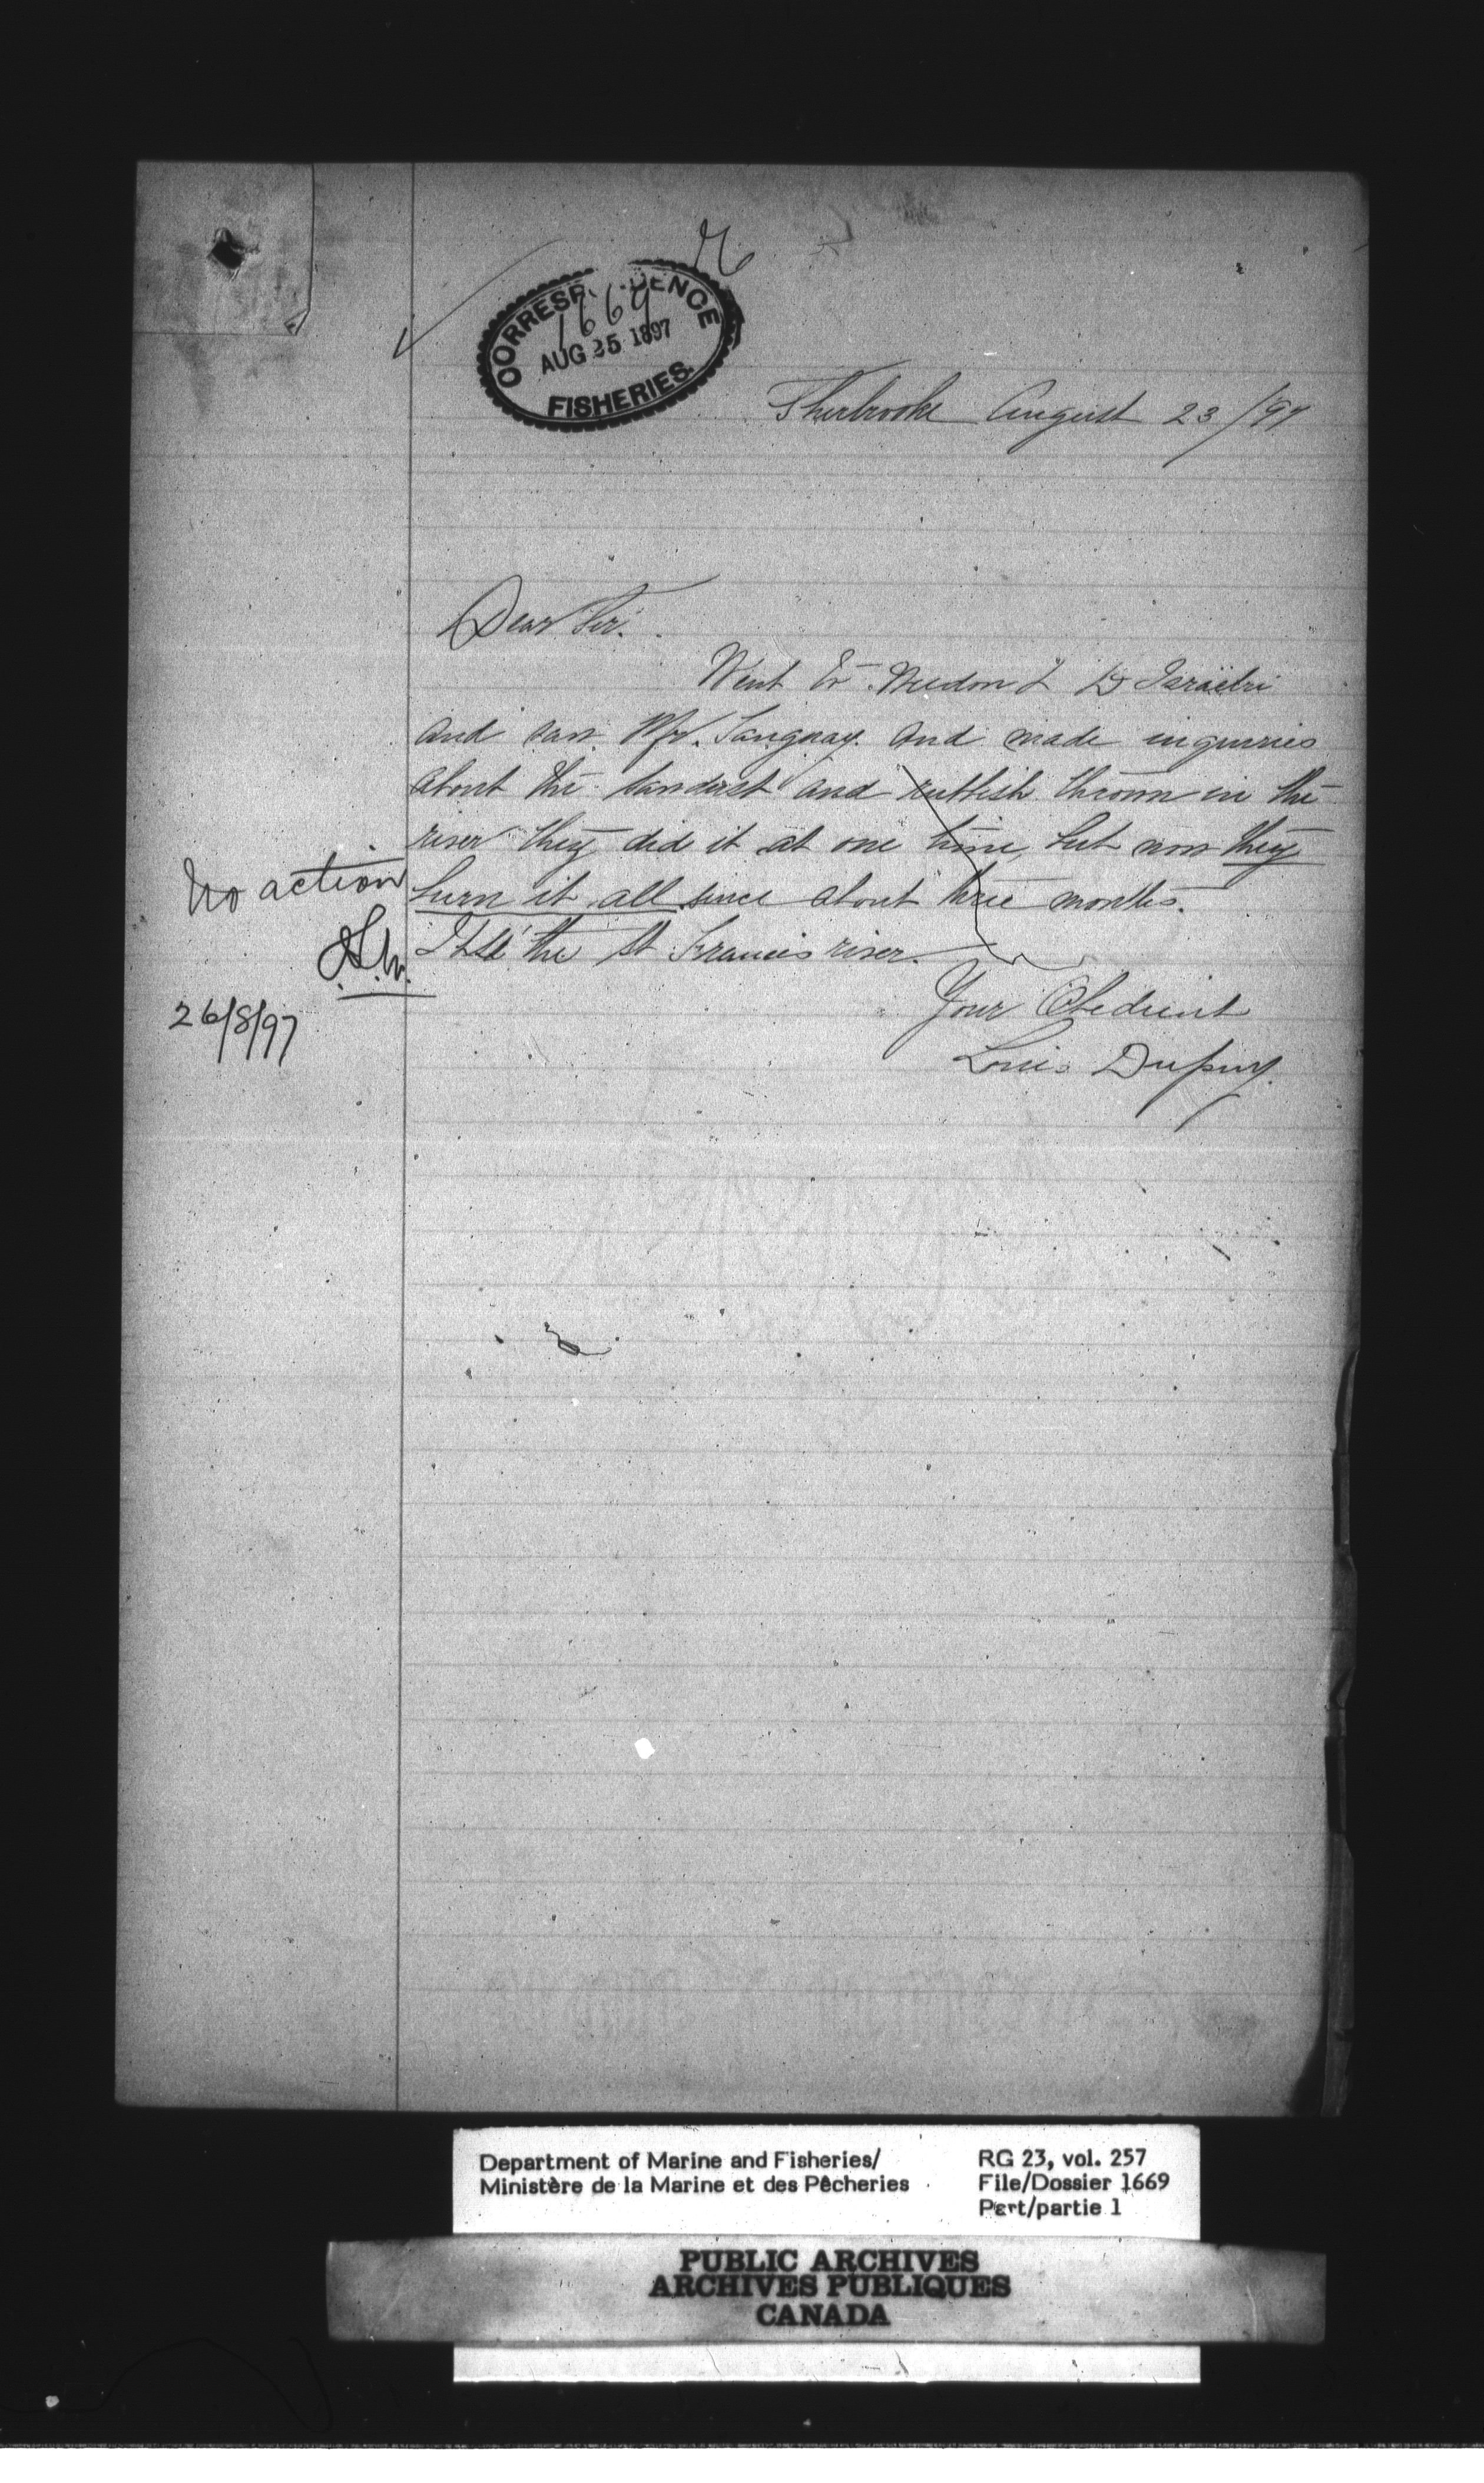 76
CORRESPONDENCE
1669
AUG 25 1897
FISHERIES.
Sherbrooke August 23/97
Dear Sir.
Went to Weedon & D'Israëlri
and saw Mr. Tanguay. and made inquiries
about the sawdust and rubbish thrown in the
river they did it at one time, but now they
burn it all since about three months.
the St Francis river.
Your Obedient
Louis Dupuy.
No action
26/8/97
Department of Marine and Fisheries/
Ministère de la Marine et des Pêcheries
RG 23, vol. 257
File/Dossier 1669
Part/partie 1
PUBLIC ARCHIVES
ARCHIVES PUBLIQUES
CANADA